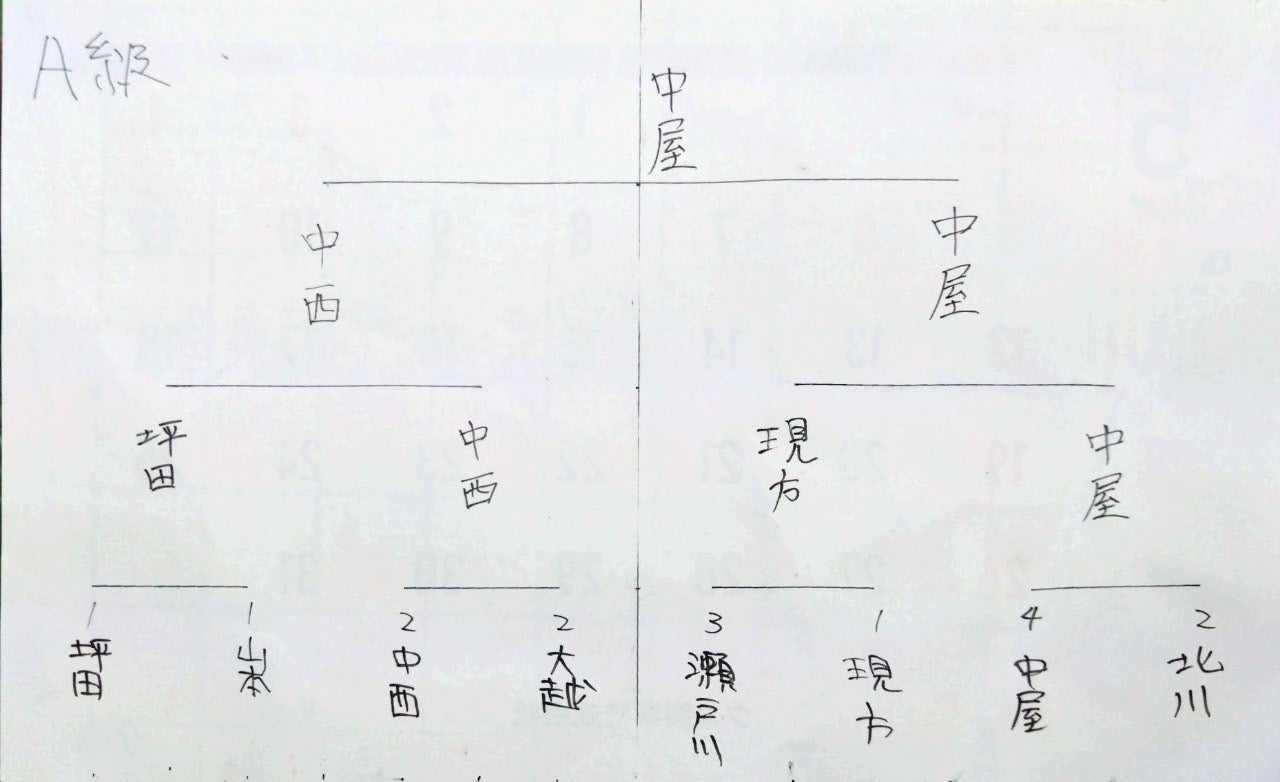 A級
中屋
中西
中屋
坪田
中西
現方
中屋
1
1
2
2
3
1
4
2
坪田
山本
中西
大越
瀬戸川
現方
中屋
北川